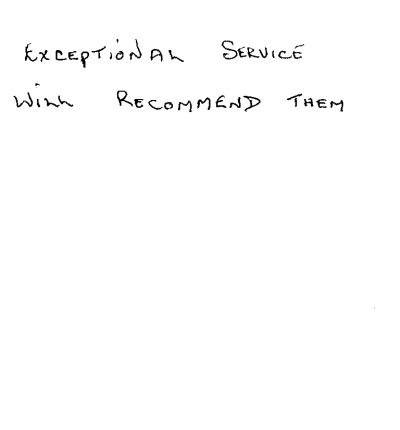 EXCEPTiONAL SERVICE
WiLL RECOMMEND THEM